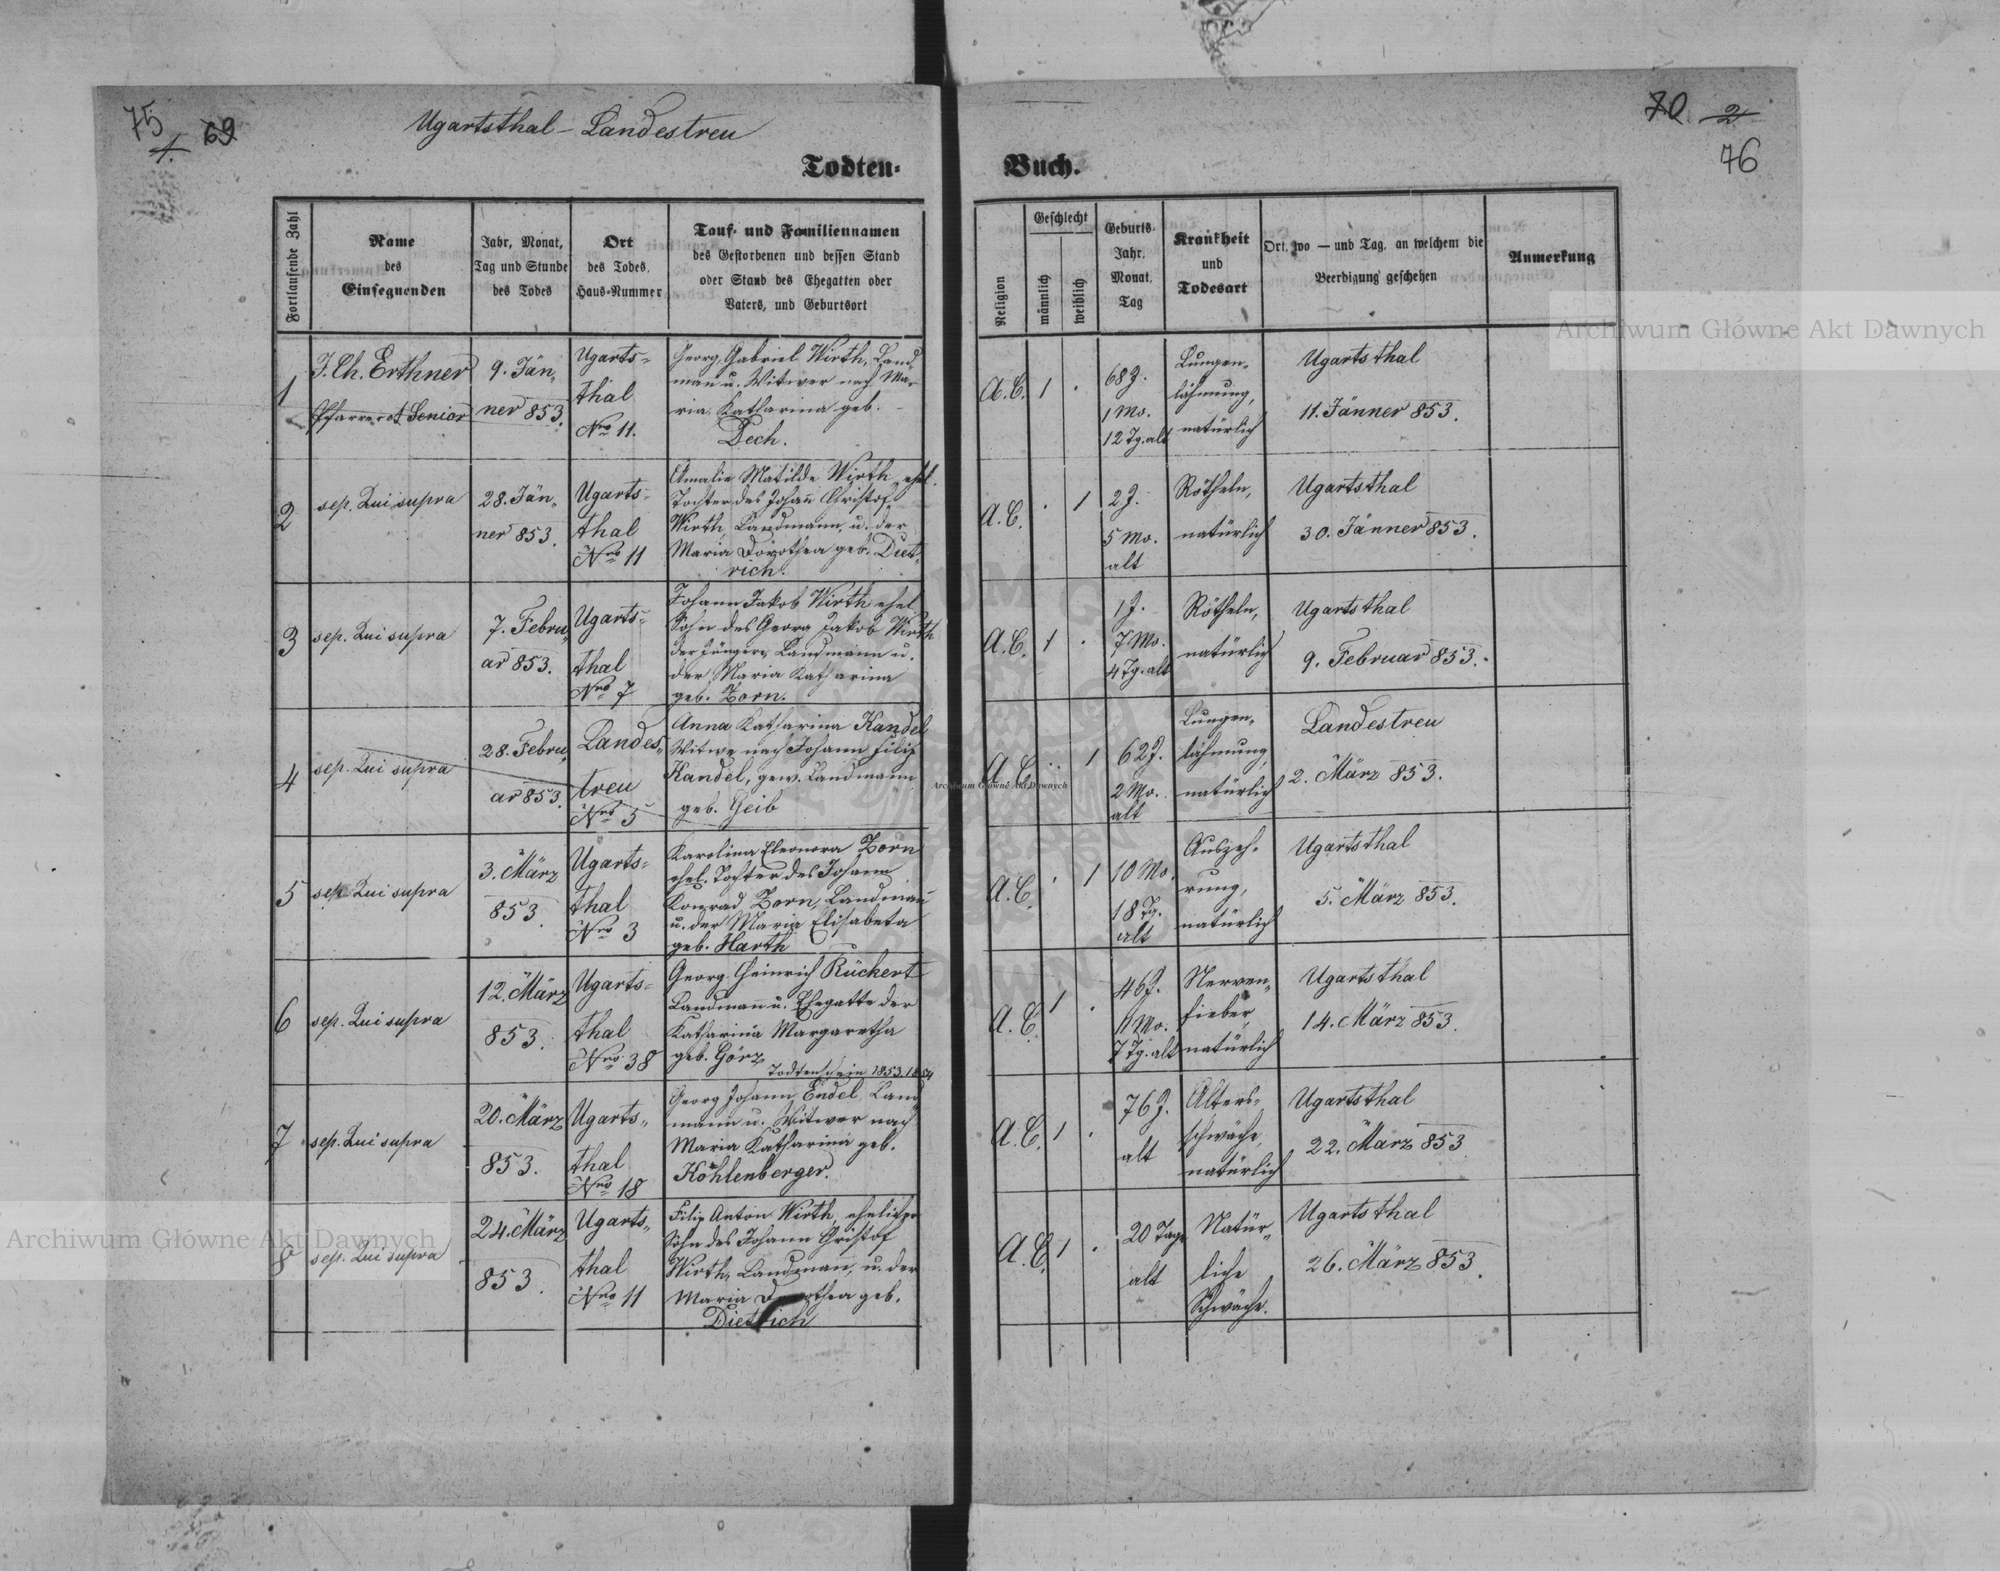 75
1.
69
Ugartsthal - Landestreu
Todten-
Buch.
70
2
76
Fortlaufende Zahl
Name
des
Einsegnenden
Jahr, Monat,
Tag und Stunde
des Todes
Ort
des Todes,
Haus-Nummer
Tauf- und Familiennamen
des Gestorbenen und dessen Stand
oder Stand des Ehegatten oder
Vaters, und Geburtsort
Religion
Geschlecht
männlich
weiblich
Geburts-
Jahr,
Monat,
Tag
Krankheit
und
Todesart
Ort, wo — und Tag, an welchem die
Beerdigung geschehen
Anmerkung
1
J. Ch. Erthner
Pfarrer et Senior
9. Jän„
ner 853.
Ugarts-
thal
Nro 11.
Georg Gabriel Wirth, Land„
mann u. Witwer nach Ma-
ria Katharina geb.
Pech.
A.C.
1
68 J.
1 Mo.
12 Tg. alt
Lungen„
lähmung,
natürlich
Ugartsthal
11. Jänner 853.
2
sep. Qui supra
28. Jän„
ner 853.
Ugarts-
thal
Nro 11
Amalie Matilde Wirth, ehel.
Tochter des Johañ Christof
Wirth, Landmann, u. der
Maria Dorothea geb. Diet„
rich.
A.C.
1
2 J.
5 Mo.
alt
Rötheln,
natürlich
Ugartsthal
30. Jänner 853.
3
sep. Qui supra
7. Febru„
ar 853.
Ugarts-
thal
Nro 7
Johann Jakob Wirth, ehel.
Sohn des Georg Jakob Wirth
der Jüngere, Landmann u.
der Maria Katharina
geb. Zorn.
A.C.
1
1 J.
7 Mo.
4 Tg. alt
Rötheln,
natürlich
Ugartsthal
9. Februar 853.
4
sep. Qui supra
28. Febru„
ar 853.
Landes„
treu
Nro 5
Anna Katharina Kandel
Witwe nach Johann Filip
Kandel, gew. Landmann
geb. Geib
A.C.
1
62 J.
2 Mo.
alt
Lungen„
lähmung,
natürlich
Landestreu
2. März 853.
5
sep. Qui supra
3. März
853.
Ugarts-
thal
Nro 3
Karolina Eleonora Zorn
ehel. Tochter des Johann
Konrad Zorn, Landmañ
u. der Maria Elisabeta
geb. Harth
A.C.
1
10 Mo.
18 Tg.
alt
Auszeh-
rung,
natürlich
Ugartsthal
5. März 853.
6
sep. Qui supra
12. März
853.
Ugarts-
thal
Nro 38
Georg Heinrich Rückert
Landmann u. Ehegatte der
Katharina Margaretha
geb. Görz
Todtenschein 1853.
A.C.
1
46 J.
11 Mo.
7 Tg. alt
Nerven„
fieber,
natürlich
Ugartsthal
14. März 853.
7
sep. Qui supra
20. März
853.
Ugarts„
thal
Nro 18
Georg Johann Endel, Land
mann u. Witwer nach
Maria Katharina geb.
Köhlenberger.
A.C.
1
76 J.
alt
Alters-
schwäche,
natürlich
Ugartsthal
22. März 853.
8
sep. Qui supra
24. März
853.
Ugarts„
thal
Nro 11
Filip Anton Wirth, ehelicher
Sohn des Johann Christof
Wirth, Landman, u. der
Maria Dorothea geb.
Dietrich
A.C.
1
20 Tage
alt
Natür„
liche
Schwäche.
Ugartsthal
26. März 853.
Archiwum Główne Akt Dawnych
Archiwum Główne Akt Dawnych
Archiwum Główne Akt Dawnych